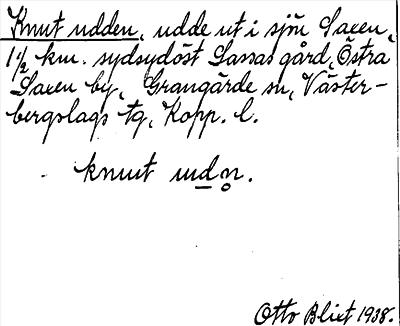 Knut udden, udde ut i sjön Saxen,
1½ km. sydsydöst Lassas gård, Östra
Saxen by, Grangärde sn, Väster-
bergslags tg, Kopp. l.
knut ud̲n̥.
Otto Blixt 1938.